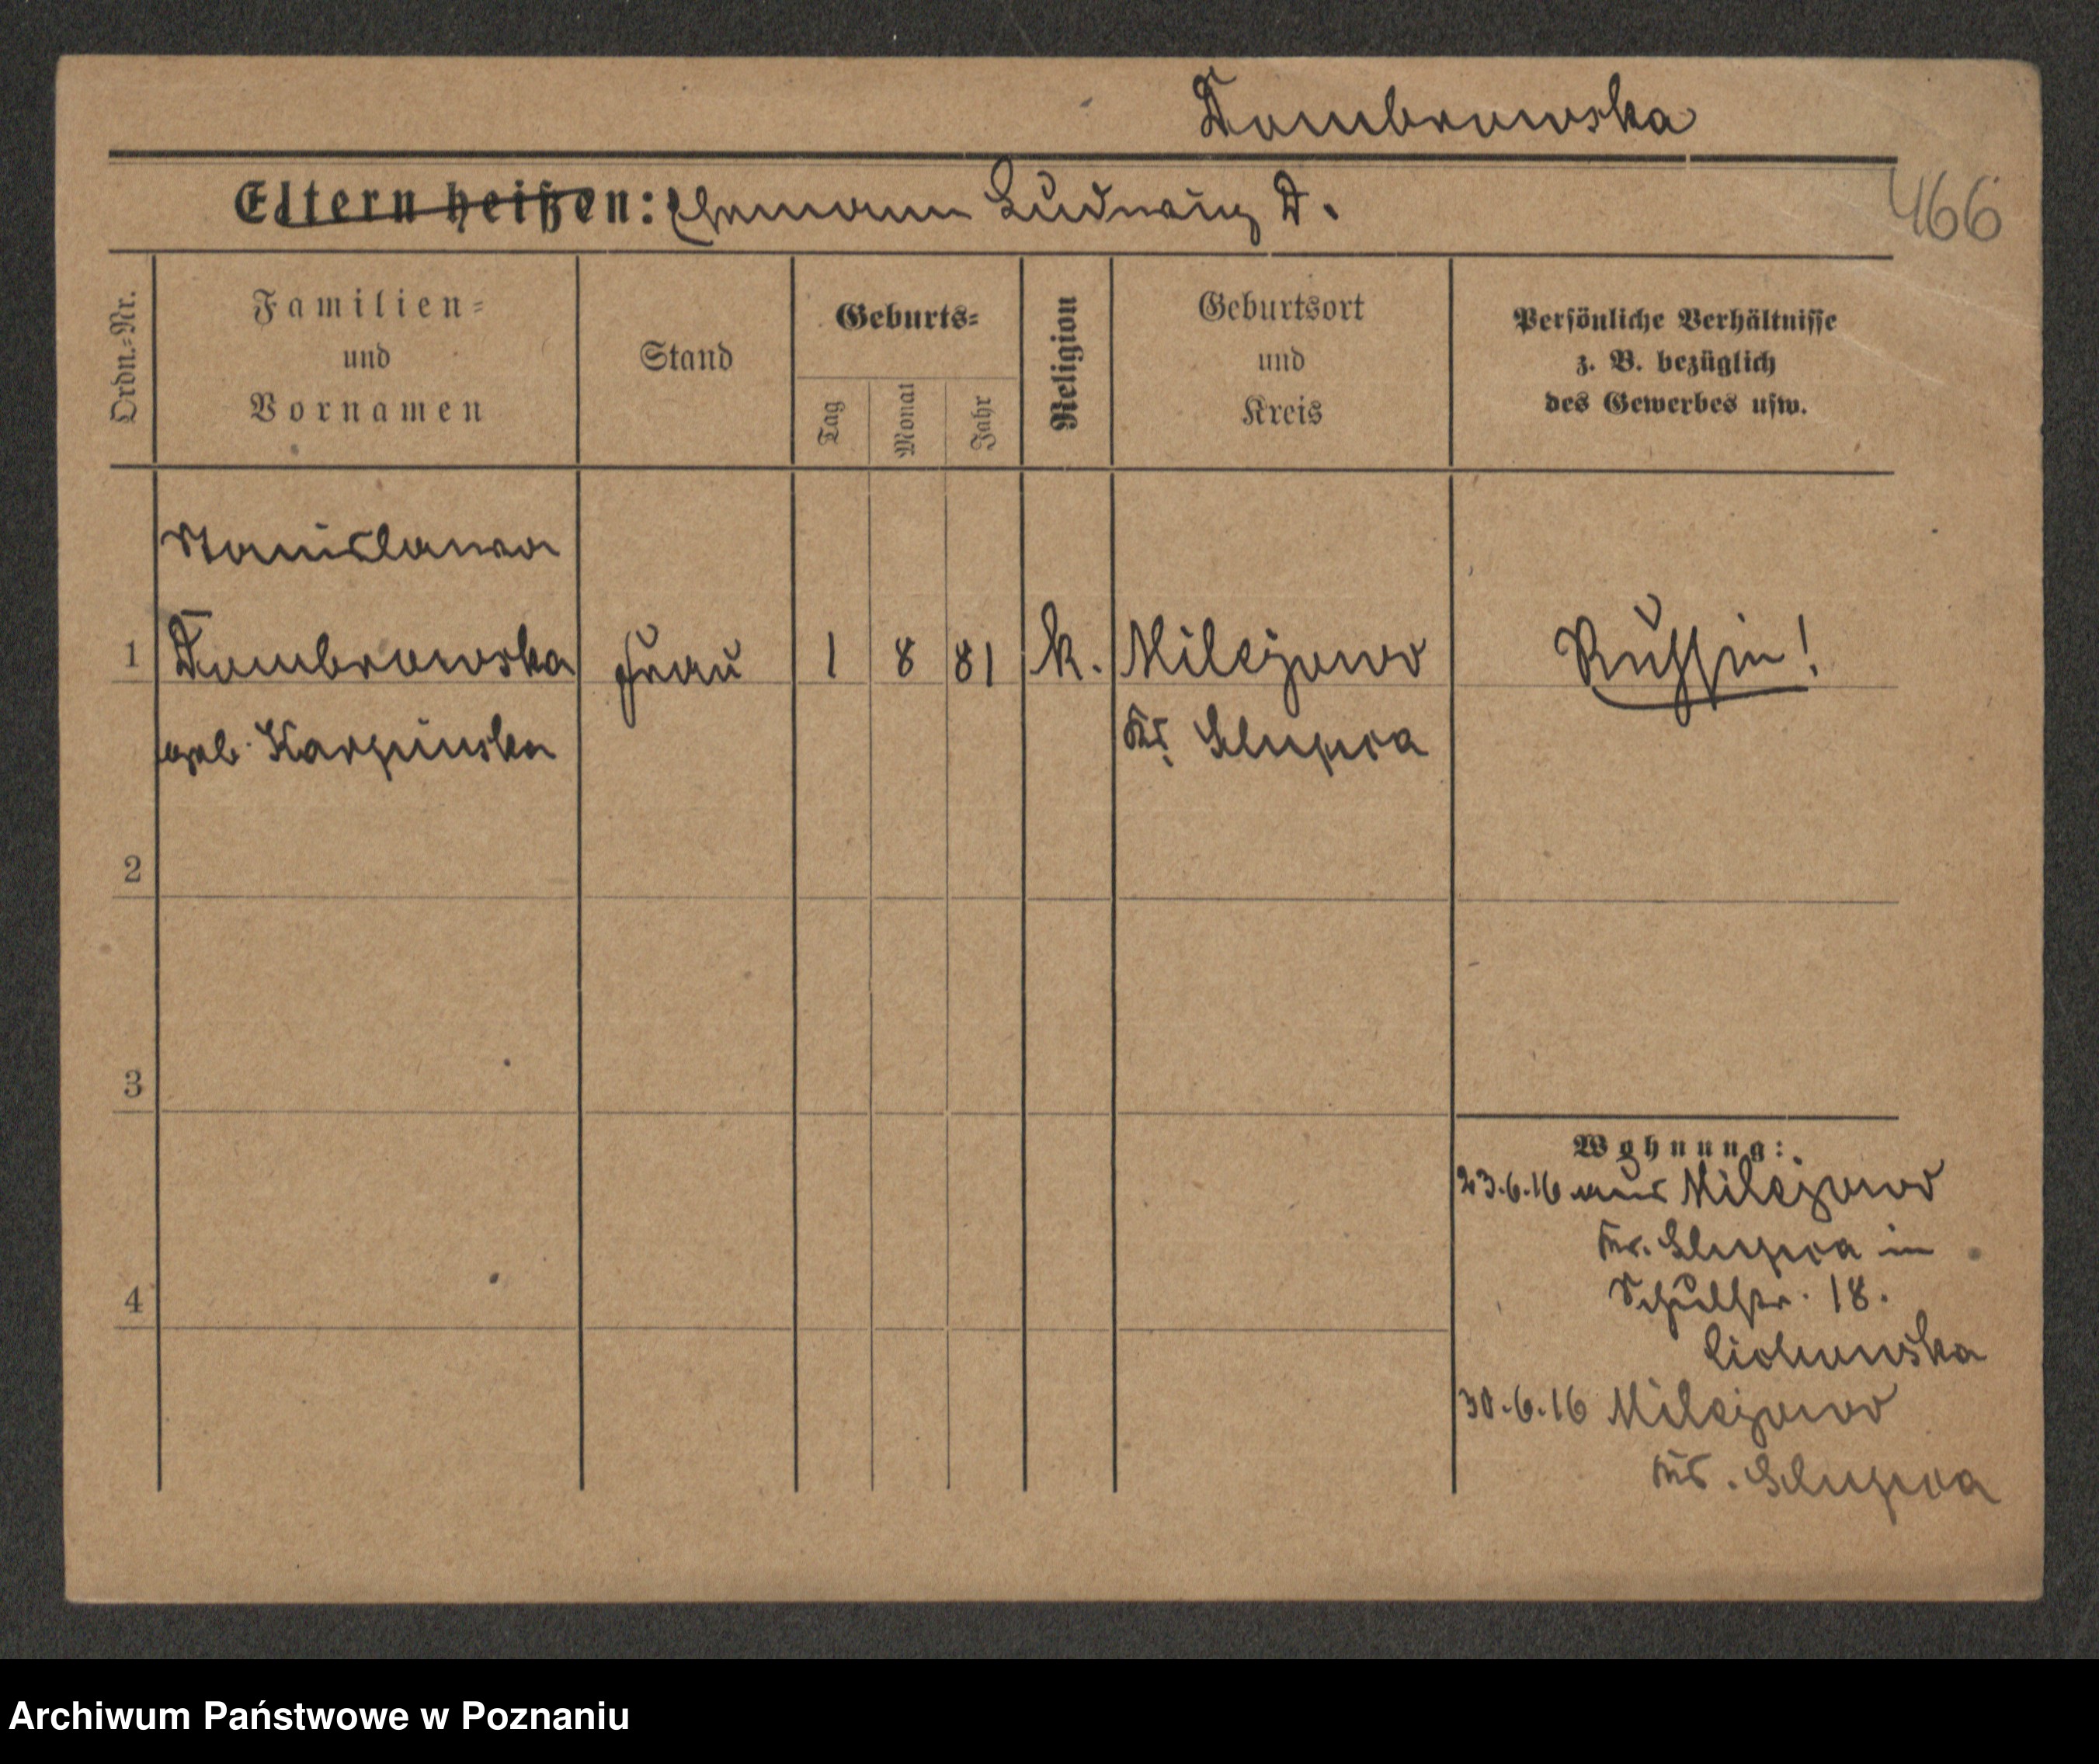 Dombrowska
Eltern heißen: Ehemann Ludwig D.
466
Ordn.=Nr.
Familien=
und
Vornamen
Stand
Geburts=
Tag
Monat
Jahr
Religion
Geburtsort
und
Kreis
Persönliche Verhältnisse
z. B. bezüglich
des Gewerbes usw.
Stanislawa
1 Dombrowska Frau 1 8 81 k. Milejowo Russin!
geb. Karpinska Kr. Slupca
2
3
Wohnung:
23.6.16 aus Milejowo
Kr. Slupca in
4 Schulstr. 18.
30.6.16 Milejowo
Kr. Slupca
Archiwum Państwowe w Poznaniu